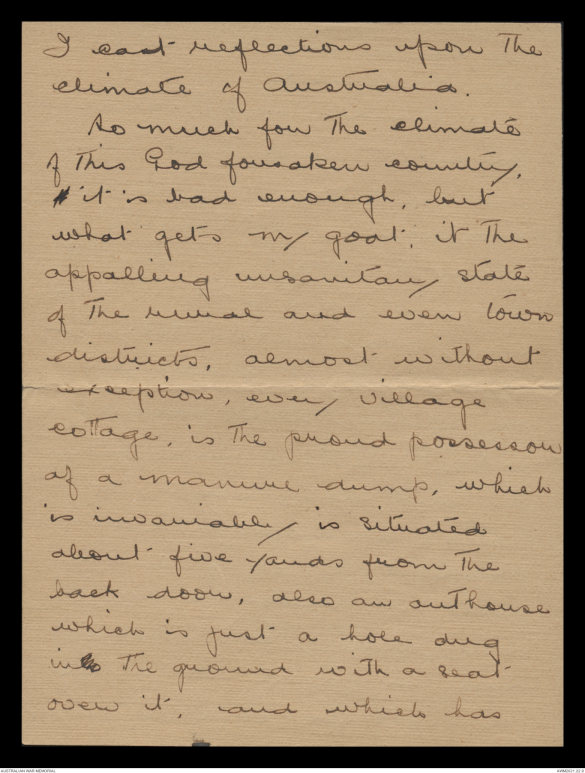 I cast reflections upon the
climate of Australia.
So much for the climate
of this God forsaken country,
it is bad enough, but
what gets my goat, it the
appalling unsanitary state
of the rural and even town
districts, almost without
exception, every village
cottage, is the proud possessor
of a manure dump, which
is invariably is situated
about five yards from the
back door, also an outhouse
which is just a hole dug
into the ground with a seat
over it, and which has
AUSTRALIAN WAR MEMORIAL